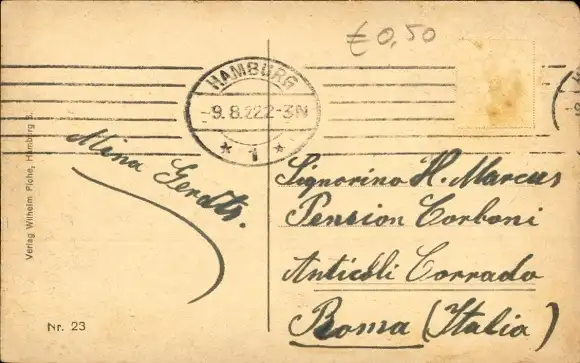 €0,50
HAMBURG
-9.8.22.2-3N
* 1 *
Mina Gerdts.
Signorino H. Marcus
Pension Corboni
Anticoli Corrado
Roma (Italia)
Verlag Wilhelm Piche, Hamburg 3.
Nr. 23